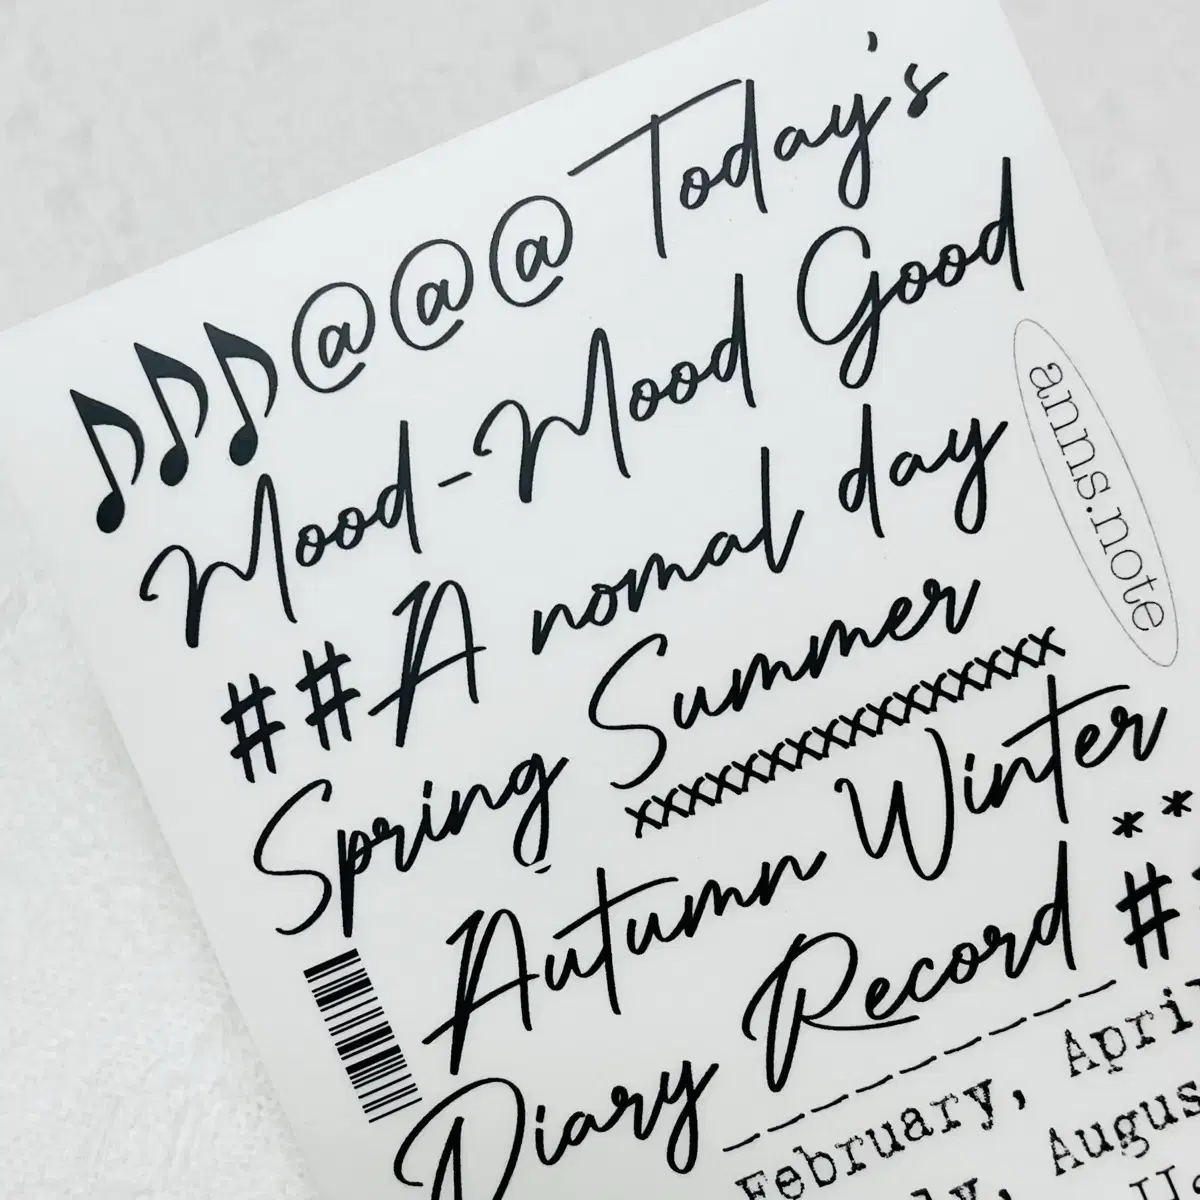 ♪♪♪@@@ Today's
Mood-Mood Good
##A nomal day
anns.note
Spring Summer
xxxxxxxxxxxxxxxxx
Autumn Winter
**
Diary Record #
February, April
August